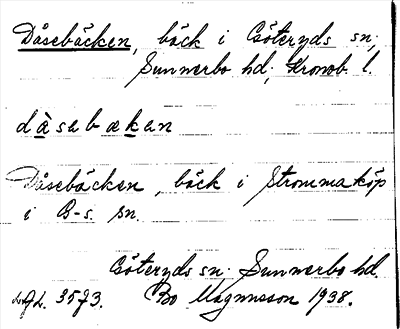 Dåsebäcken, bäck i Göteryds sn,
Sunnerbo hd, Kronob. l.
dåsebækən
Dåsebäcken, bäck i Strommaköp
i B-s. sn.
Göteryds sn. Sunnerbo hd.
3573. Bo Magnusson 1938.